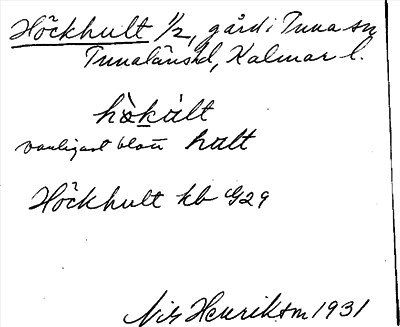 Höckhult 1/2, gård i Tuna sn
Tunaläns hd, Kalmar l.
hö̀kúlt
vanligast blott hult
Höckhult kb G29
Nils Henrikson 1931